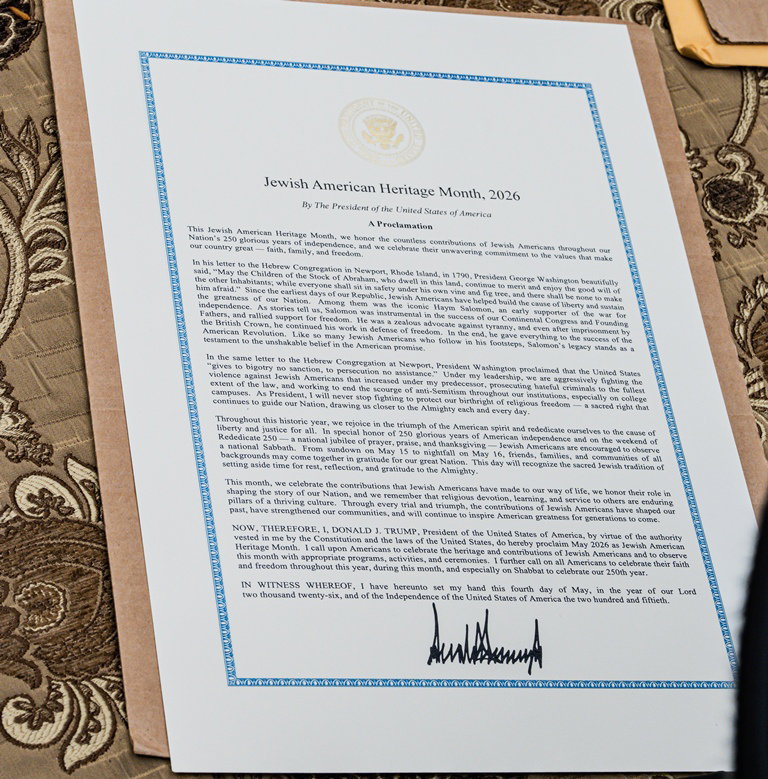 Jewish American Heritage Month, 2026
By The President of the United States of America
A Proclamation
This Jewish American Heritage Month, we honor the countless contributions of Jewish Americans throughout our
Nation's 250 glorious years of independence, and we celebrate their unwavering commitment to the values that make
our country great — faith, family, and freedom.
In his letter to the Hebrew Congregation in Newport, Rhode Island, in 1790, President George Washington beautifully
said, "May the Children of the Stock of Abraham, who dwell in this land, continue to merit and enjoy the good will of
the other Inhabitants; while everyone shall sit in safety under his own vine and fig tree, and there shall be none to make
him afraid." Since the earliest days of our Republic, Jewish Americans have helped build the cause of liberty and sustain
the greatness of our Nation. Among them was the iconic Haym Salomon, an early supporter of the war for
independence. As stories tell us, Salomon was instrumental in the success of our Continental Congress and Founding
Fathers, and rallied support for freedom. He was a zealous advocate against tyranny, and even after imprisonment by
the British Crown, he continued his work in defense of freedom. In the end, he gave everything to the success of the
American Revolution. Like so many Jewish Americans who follow in his footsteps, Salomon's legacy stands as a
testament to the unshakable belief in the American promise.
In the same letter to the Hebrew Congregation at Newport, President Washington proclaimed that the United States
"gives to bigotry no sanction, to persecution no assistance." Under my leadership, we are aggressively fighting the
violence against Jewish Americans that increased under my predecessor, prosecuting hateful criminals to the fullest
extent of the law, and working to end the scourge of anti-Semitism throughout our institutions, especially on college
campuses. As President, I will never stop fighting to protect our birthright of religious freedom — a sacred right that
continues to guide our Nation, drawing us closer to the Almighty each and every day.
Throughout this historic year, we rejoice in the triumph of the American spirit and rededicate ourselves to the cause of
liberty and justice for all. In special honor of 250 glorious years of American independence and on the weekend of
Rededicate 250 — a national jubilee of prayer, praise, and thanksgiving — Jewish Americans are encouraged to observe
a national Sabbath. From sundown on May 15 to nightfall on May 16, friends, families, and communities of all
backgrounds may come together in gratitude for our great Nation. This day will recognize the sacred Jewish tradition of
setting aside time for rest, reflection, and gratitude to the Almighty.
This month, we celebrate the contributions that Jewish Americans have made to our way of life, we honor their role in
shaping the story of our Nation, and we remember that religious devotion, learning, and service to others are enduring
pillars of a thriving culture. Through every trial and triumph, the contributions of Jewish Americans have shaped our
past, have strengthened our communities, and will continue to inspire American greatness for generations to come.
NOW, THEREFORE, I, DONALD J. TRUMP, President of the United States of America, by virtue of the authority
vested in me by the Constitution and the laws of the United States, do hereby proclaim May 2026 as Jewish American
Heritage Month. I call upon Americans to celebrate the heritage and contributions of Jewish Americans and to observe
this month with appropriate programs, activities, and ceremonies. I further call on all Americans to celebrate their faith
and freedom throughout this year, during this month, and especially on Shabbat to celebrate our 250th year.
IN WITNESS WHEREOF, I have hereunto set my hand this fourth day of May, in the year of our Lord
two thousand twenty-six, and of the Independence of the United States of America the two hundred and fiftieth.